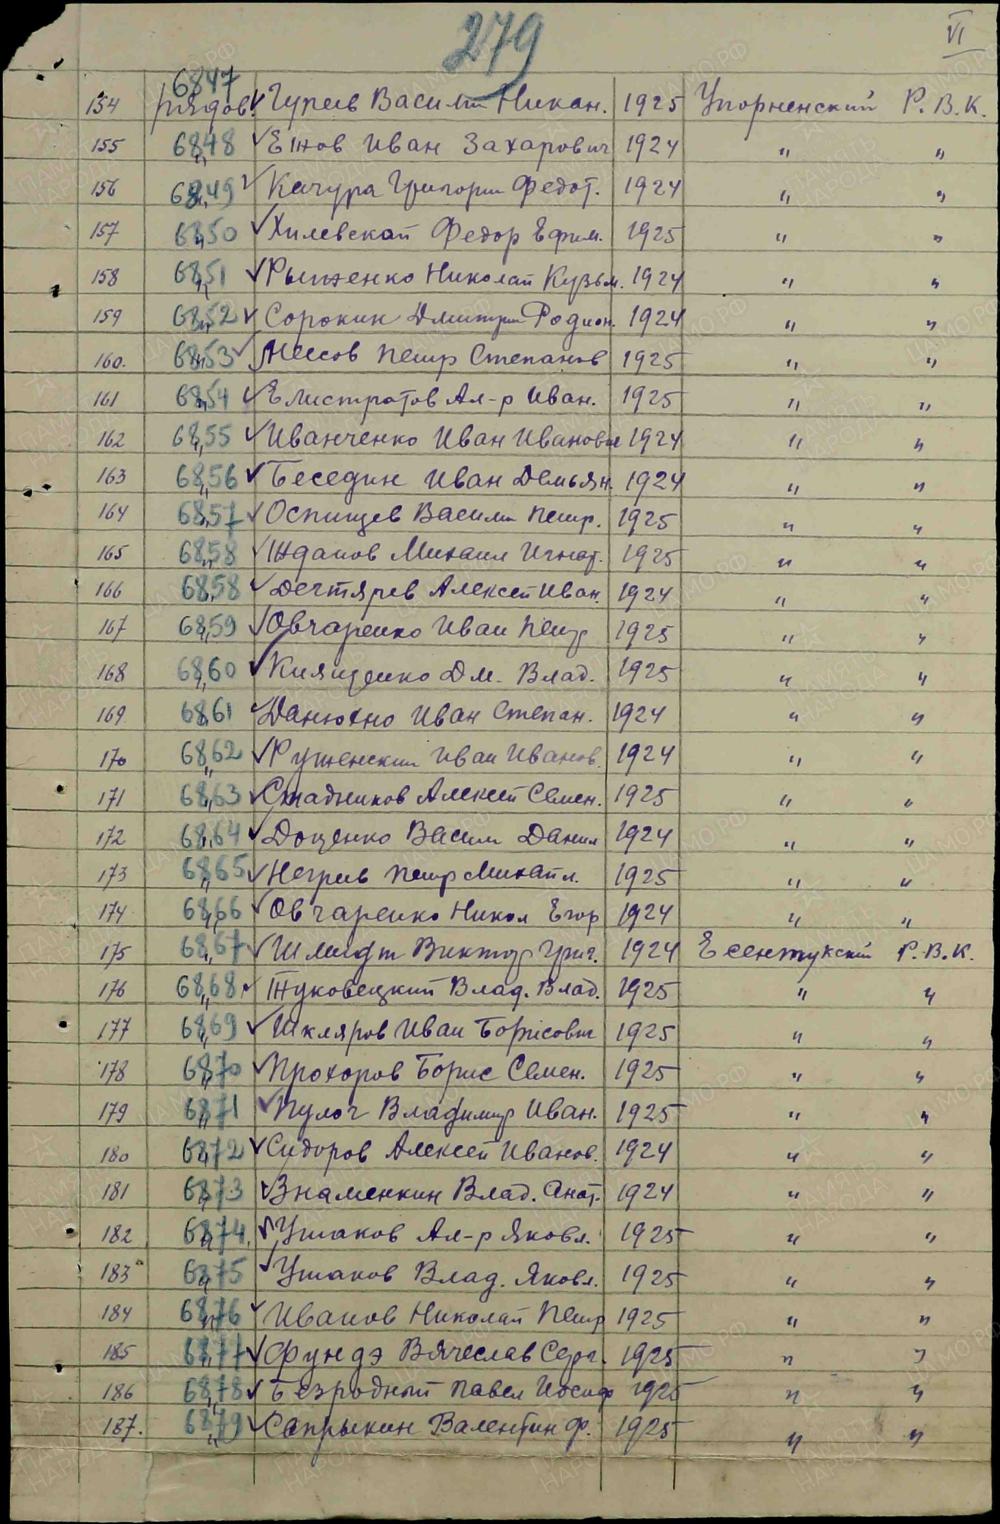 279
VI
154 6847 рядов. Гуреев Василий Никан. 1925 Упорненский Р.В.К.
155 6848 " Ежов Иван Захарович 1924 " "
156 6849 " Качура Григорий Федот. 1924 " "
157 6850 " Хилевской Федор Ефим. 1925 " "
158 6851 " Рыженко Николай Кузьм. 1924 " "
159 6852 " Сорокин Дмитрий Родион. 1924 " "
160. 6853 " Петр Степанов 1925 " "
161 6854 " Елистратов Ал-р Иван. 1925 " "
162 6855 " Иванченко Иван Иванович 1924 " "
163 6856 " Беседин Иван Демьян. 1924 " "
164 6857 " Оспищев Василий Петр. 1925 " "
165 6858 " Жданов Михаил Игнат. 1925 " "
166 6858 " Дегтярев Алексей Иван. 1924 " "
167 6859 " Овчаренко Иван Петр 1925 " "
168 6860 " Кнященко Дм. Влад. 1925 " "
169 6861 Данюхно Иван Степан. 1924 " "
170 6862 " Руженский Иван Иванов. 1924 " "
171 6863 " Стадников Алексей Семен. 1925 " "
172 6864 " Доценко Васили Данил 1924 " "
173 6865 " Негрев Петр Михайл. 1925 " "
174 6866 " Овчаренко Никол Егор 1924 " "
175 6867 " Шмидт Виктор Григ. 1924 Есентукский Р.В.К.
176 6868 " Жуковецкий Влад. Влад. 1925 " "
177 6869 " Шкляров Иван Борисович 1925 " "
178 6870 " Прохоров Борис Семен. 1925 " "
179 6871 " Пулоч Владимир Иван. 1925 " "
180 6872 " Сидоров Алексей Иванов. 1924 " "
181 6873 " Знаменкин Влад. Анат. 1924 " "
182 6874 " Ушаков Ал-р Яковл. 1925 " "
183 6875 " Ушаков Влад. Яковл. 1925 " "
184 6876 " Иванов Николай Петр 1925 " "
185 6877 " Фундэ Вячеслав Серг. 1925 " "
186 6878 " Безродный Павел Иосиф 1925 " "
187. 6879 " Сапрыкин Валентин Ф. 1925 " "